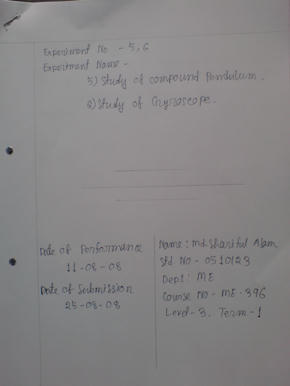 Experiment No - 5, 6
Experiment Name -
5) Study of compound Pendulum.
6) Study of Gyroscope.
Date of Performance
11-08-08
Date of Submission
25-08-08
Name: Md. Shariful Alam
Std No - 0510123
Dept: ME
Course No - ME-396
Level-3, Term-1